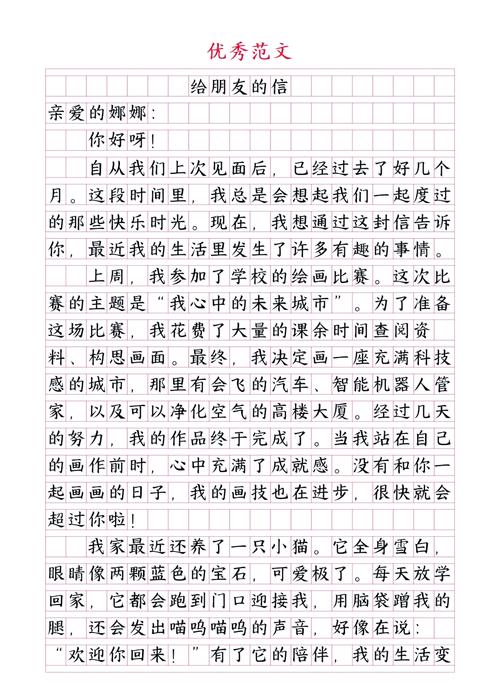 优秀范文
给朋友的信
亲爱的娜娜：
你好呀！
自从我们上次见面后，已经过去了好几个
月。这段时间里，我总是会想起我们一起度过
的那些快乐时光。现在，我想通过这封信告诉
你，最近我的生活里发生了许多有趣的事情。
上周，我参加了学校的绘画比赛。这次比
赛的主题是“我心中的未来城市”。为了准备
这场比赛，我花费了大量的课余时间查阅资
料、构思画面。最终，我决定画一座充满科技
感的城市，那里有会飞的汽车、智能机器人管
家，以及可以净化空气的高楼大厦。经过几天
的努力，我的作品终于完成了。当我站在自己
的画作前时，心中充满了成就感。没有和你一
起画画的日子，我的画技也在进步，很快就会
超过你啦！
我家最近还养了一只小猫。它全身雪白，
眼睛像两颗蓝色的宝石，可爱极了。每天放学
回家，它都会跑到门口迎接我，用脑袋蹭我的
腿，还会发出喵呜喵呜的声音，好像在说：
“欢迎你回来！”有了它的陪伴，我的生活变